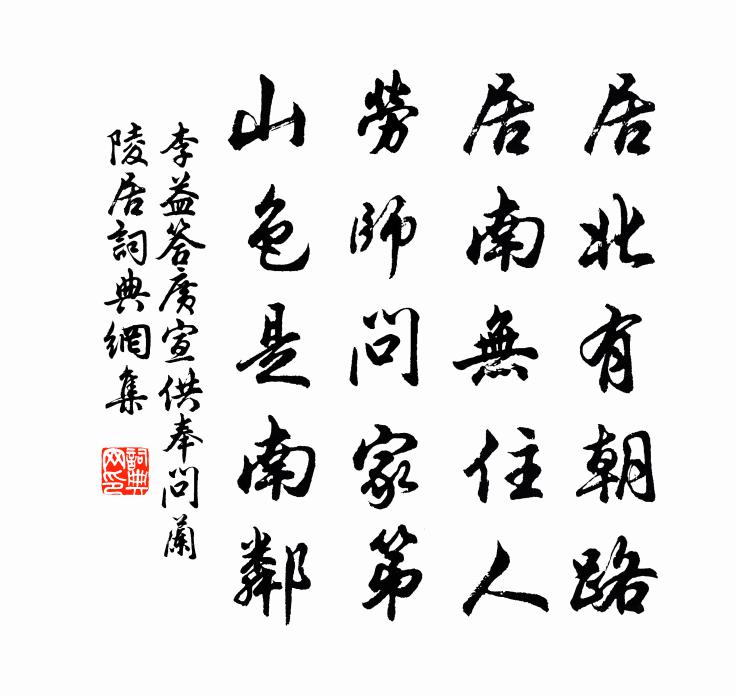 居北有朝路
居南無住人
勞師問家第
山色是南鄰
李益答廣宣供奉問蘭
陵居詞典網集
詞典网印